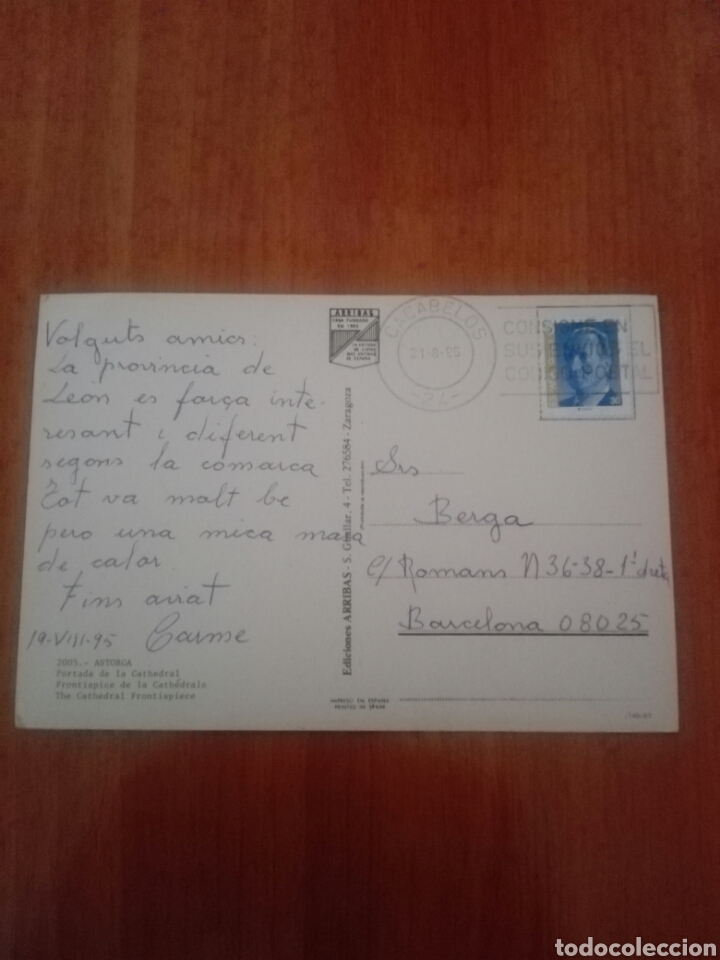 Volguts amics:
La provincia de
León es força inte-
resant i diferent
segons la comarca
Tot va molt be
pero una mica massa
de calor.
Fins aviat
19-VIII-95 Carme
2005.- ASTORGA
Portada de la Cathedral
Frontiapice de la Cathédrale
The Cathedral Frontiapiece
ARRIBAS
CASA FUNDADA
EN 1905
Ediciones ARRIBAS - S. Guallar, 4 - Tel. 276584 - Zaragoza
IMPRESO EN ESPAÑA
PRINTED IN SPAIN
CACABELOS
21-8-95
-24-
CONSIGNE EN
SUS ENVIOS EL
CODIGO POSTAL
Srs
Berga
c/ Romans N 36-38-1º dreta
Barcelona 08025
todocoleccion